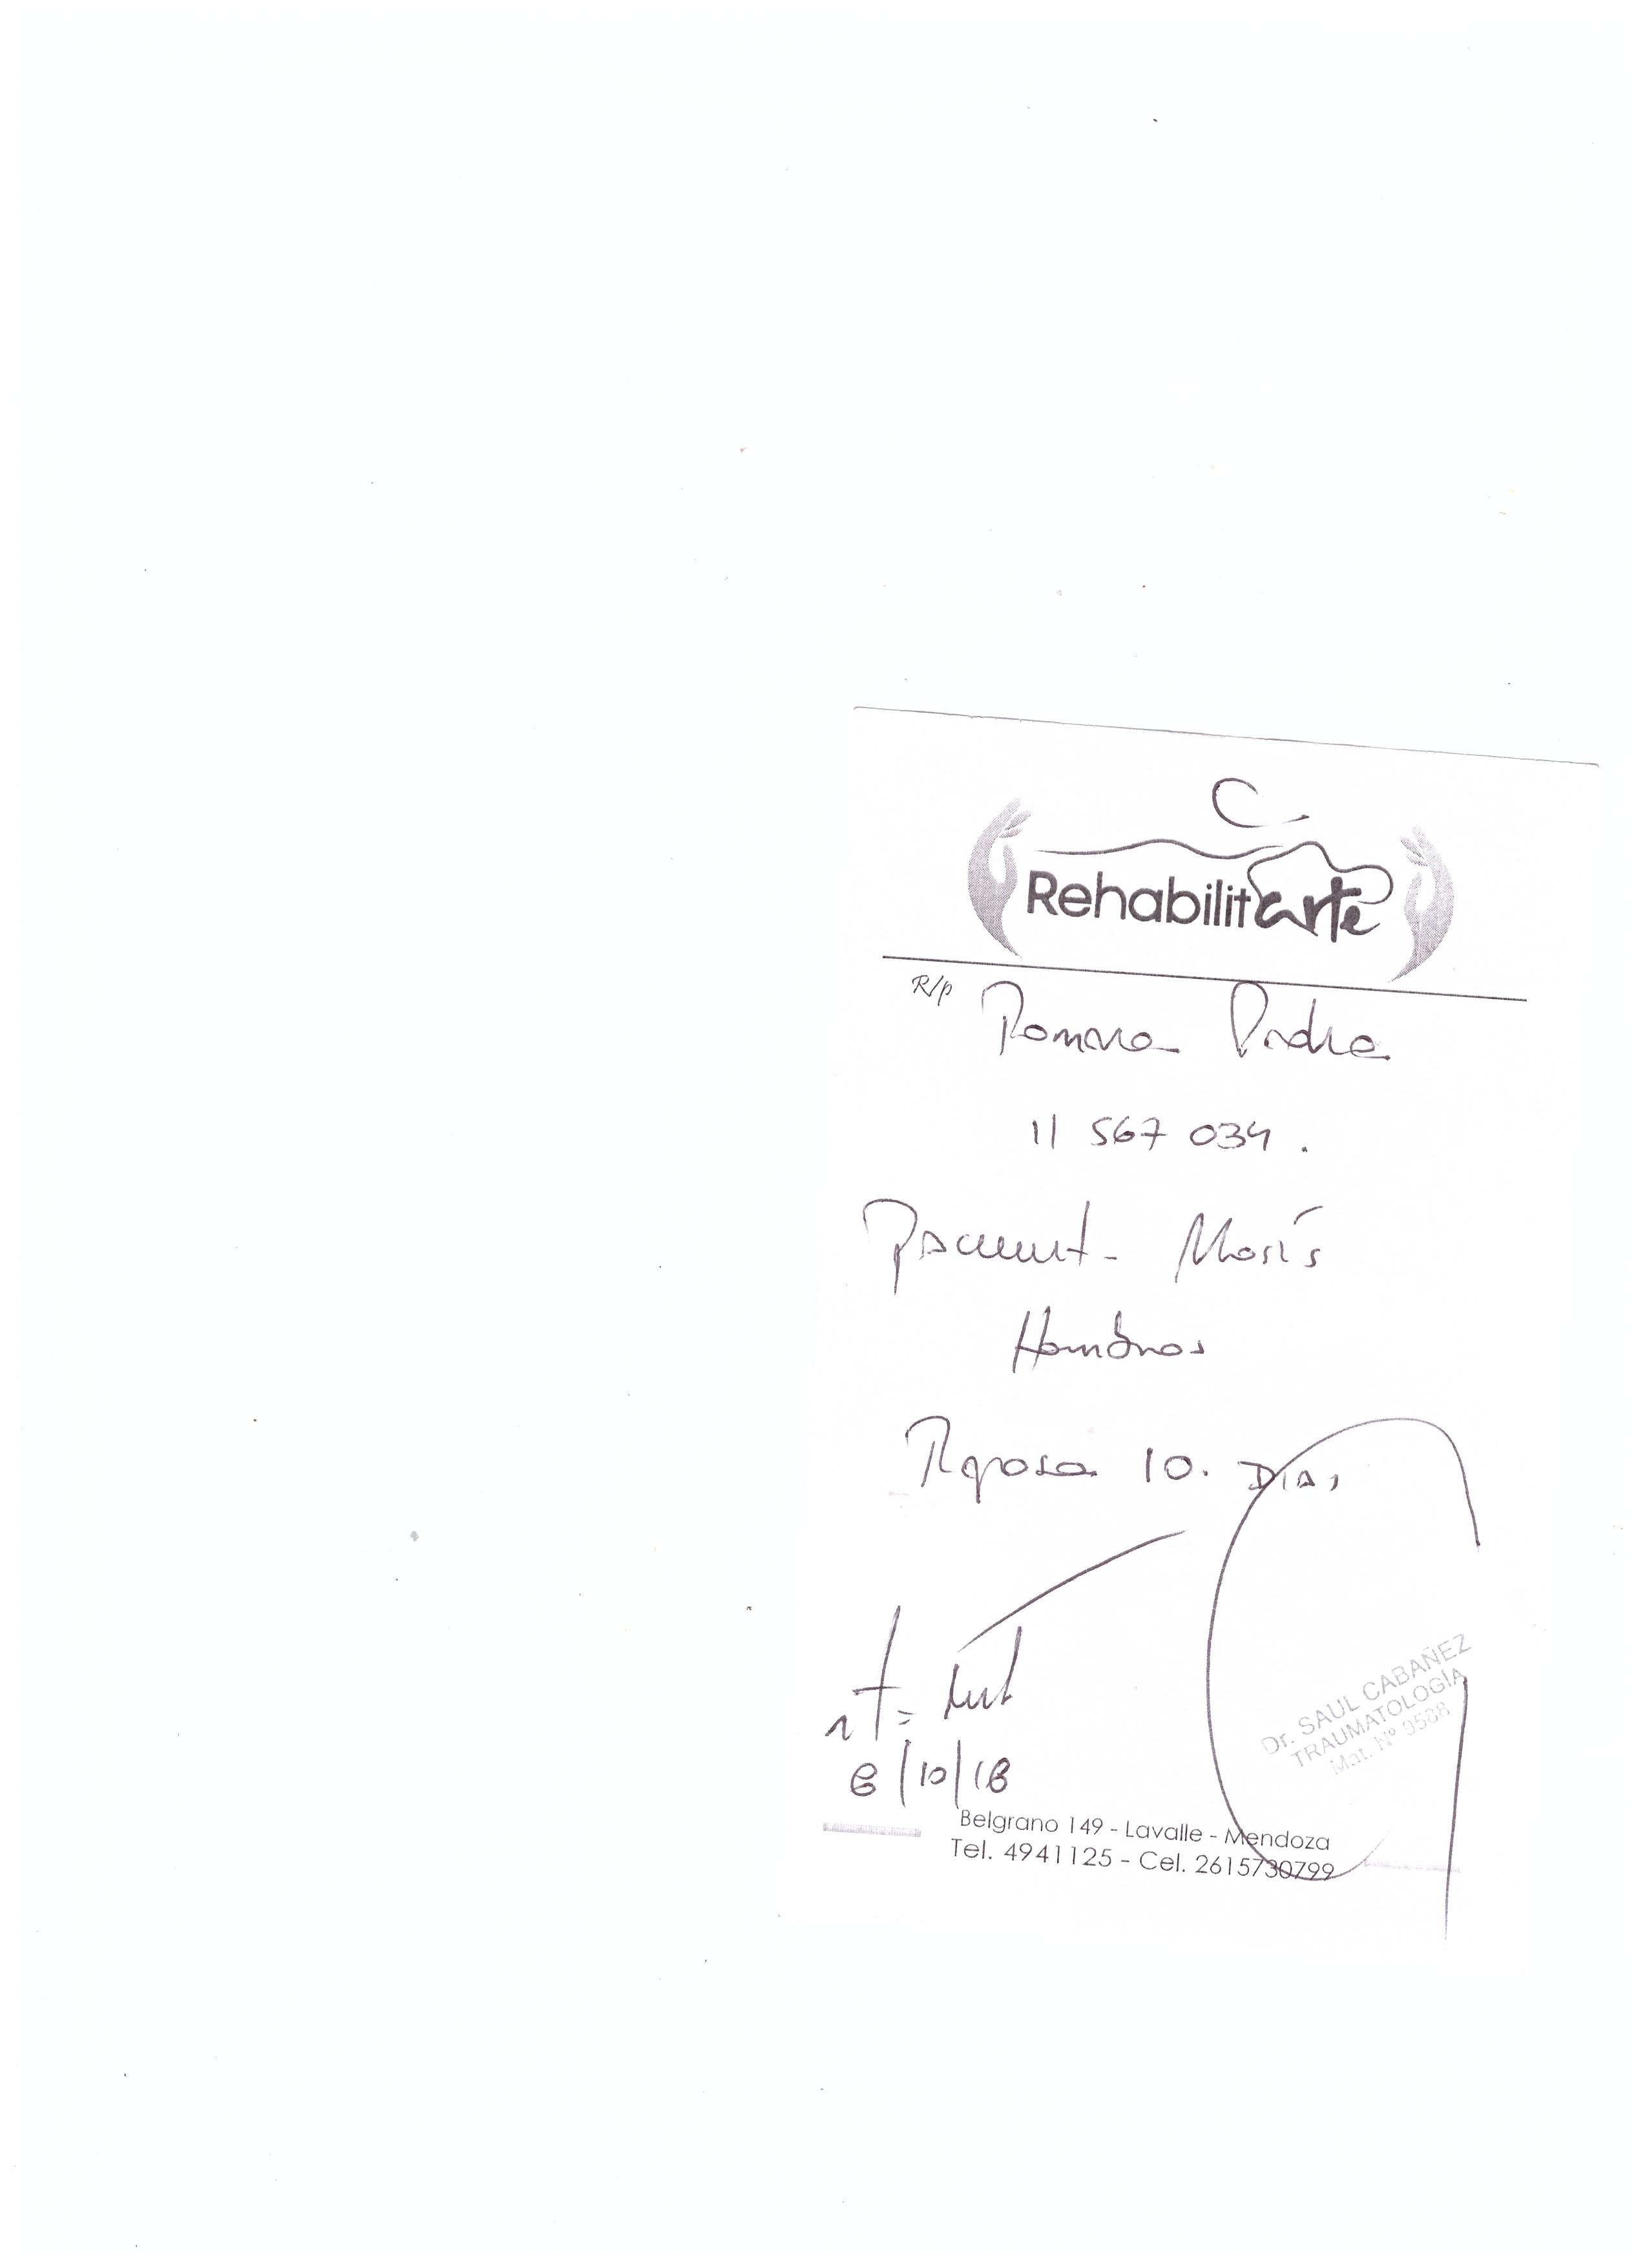 Rehabilitarte
R/p
Romero Pedro
11 567 034.
Hombros
Reposo 10. Dias
8/10/18
Dr. SAUL CABAÑEZ
TRAUMATOLOGÍA
Mat. Nº 9588
Belgrano 149 - Lavalle - Mendoza
Tel. 4941125 - Cel. 2615730799